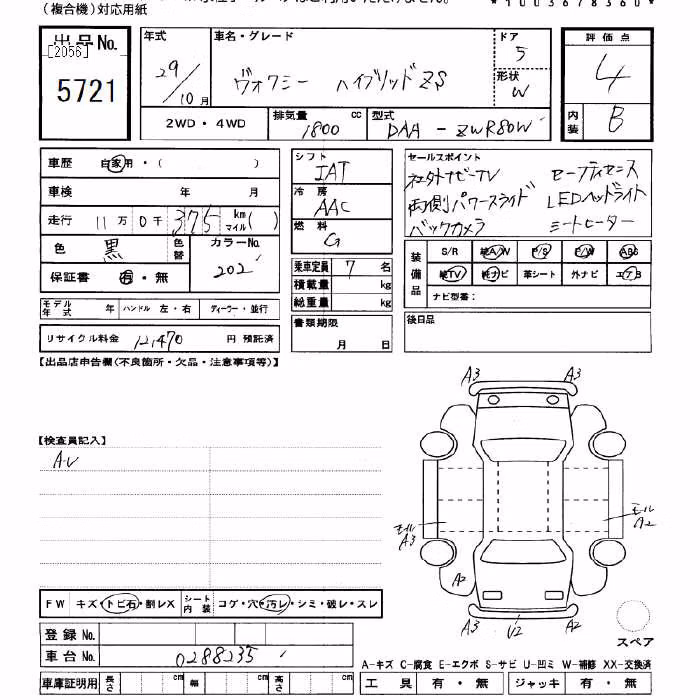 (複合機)対応用紙
*1003678360*
出品No.
[2056]
5721
年式 29/10月
車名・グレード
ヴォクシー ハイブリッドZS
ドア 5
形状 W
2WD・4WD
排気量 1800 cc
型式 DAA-ZWR80W
評価点 4
内装 B
車歴 自家用・( )
車検 年 月
走行 11万0千375 km マイル( )
色 黒 色替 カラーNo. 202
保証書 有・無
モデル年式 年 ハンドル 左・右 ディーラー・並行
リサイクル料金 12,470 円 預託済
シフト IAT
冷房 AAC
燃料 G
乗車定員 7 名
積載量 kg
総重量 kg
書類期限
月 日
セールスポイント
社外ナビTV セーフティセンス
両側パワースライド LEDヘッドライト
バックカメラ シートヒーター
装備品 S/R 純A/W P/S P/W ABS
純TV 純ナビ 革シート 外ナビ エアB
ナビ型番:
後日品
【出品店申告欄(不良箇所・欠品・注意事項等)】
【検査員記入】
A-U
A3 A3
モルA3
モルA2
A2
U2 A3
スペア
FW キズ・トビ石・割レX シート内装 コゲ・穴・汚レ・シミ・破レ・スレ
登録No.
車台No. 0288235
車庫証明用 長さ cm 幅 cm 高さ cm
A-キズ C-腐食 E-エクボ S-サビ U-凹ミ W-補修 XX-交換済
工具 有・無 ジャッキ 有・無